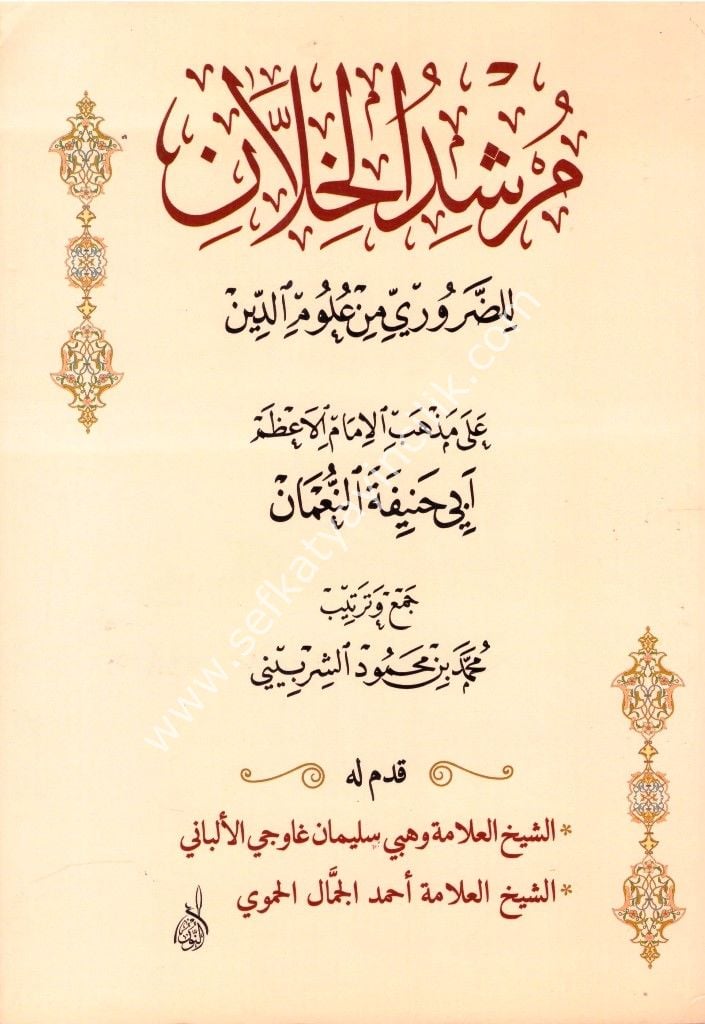 مُرْشِدُ الخِلَّانِ
لِلضَّرُورِيِّ مِنْ عُلُومِ الدِّينِ
عَلَى مَذْهَبِ الإِمَامِ الأَعْظَمِ
أَبِي حَنِيفَةَ النُّعْمَانِ
جَمْعُ وَتَرْتِيبُ
مُحَمَّدِ بْنِ مَحْمُودٍ الشِّرْبِينِي
قدم له
* الشيخ العلامة وهبي سليمان غاوجي الألباني
* الشيخ العلامة أحمد الجمَّال الحموي
www.sefkatyayincilik.com